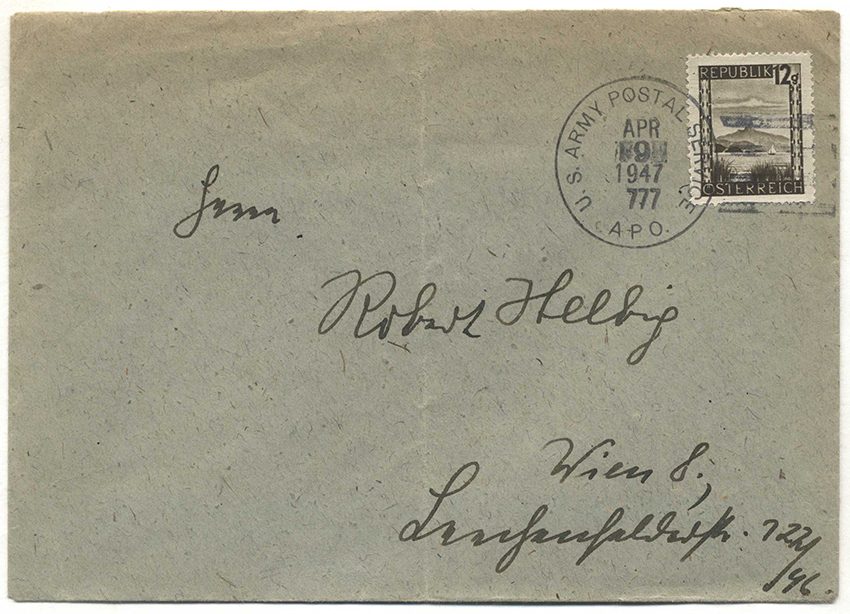 REPUBLIK 12g
ÖSTERREICH
U. S. ARMY POSTAL SERVICE
APR
9
1947
777
A P O.
Herrn
Robert Helbig
Wien 8.,
Lerchenfelderstr. 122/